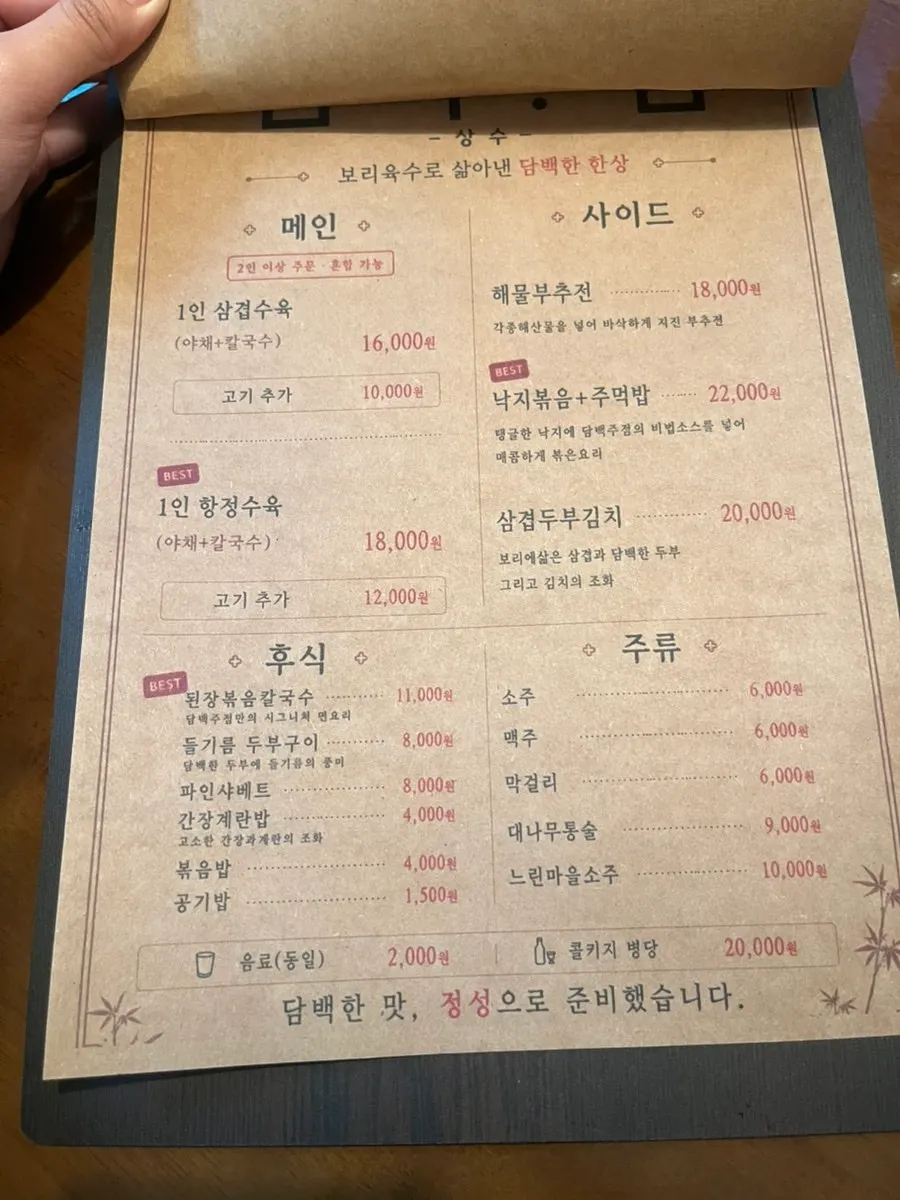 - 상수 -
보리육수로 삶아낸 담백한 한상
메인
2인 이상 주문 · 혼합 가능
1인 삼겹수육
(야채+칼국수) 16,000원
고기 추가 10,000원
BEST
1인 항정수육
(야채+칼국수) 18,000원
고기 추가 12,000원
사이드
해물부추전 18,000원
각종해산물을 넣어 바삭하게 지진 부추전
BEST
낙지볶음+주먹밥 22,000원
탱글한 낙지에 담백주점의 비법소스를 넣어
매콤하게 볶은요리
삼겹두부김치 20,000원
보리에삶은 삼겹과 담백한 두부
그리고 김치의 조화
후식
BEST
된장볶음칼국수 11,000원
담백주점만의 시그니처 면요리
들기름 두부구이 8,000원
담백한 두부에 들기름의 풍미
파인샤베트 8,000원
간장계란밥 4,000원
고소한 간장과계란의 조화
볶음밥 4,000원
공기밥 1,500원
주류
소주 6,000원
맥주 6,000원
막걸리 6,000원
대나무통술 9,000원
느린마을소주 10,000원
음료(동일) 2,000원
콜키지 병당 20,000원
담백한 맛, 정성으로 준비했습니다.